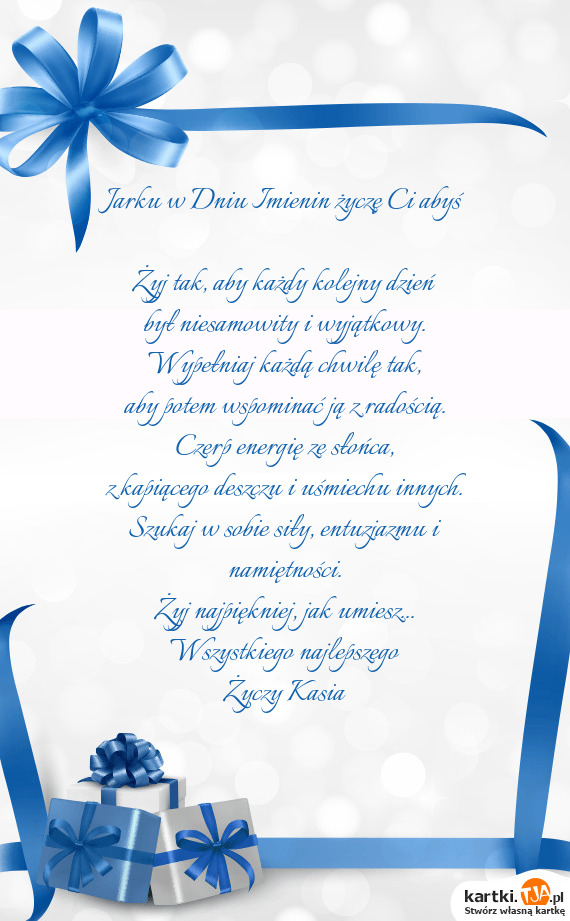 Jarku w Dniu Imienin życzę Ci abyś
Żyj tak, aby każdy kolejny dzień
był niesamowity i wyjątkowy.
Wypełniaj każdą chwilę tak,
aby potem wspominać ją z radością.
Czerp energię ze słońca,
z kapiącego deszczu i uśmiechu innych.
Szukaj w sobie siły, entuzjazmu i
namiętności.
Żyj najpiękniej, jak umiesz...
Wszystkiego najlepszego
Życzy Kasia
kartki.TJA.pl
Stwórz własną kartkę